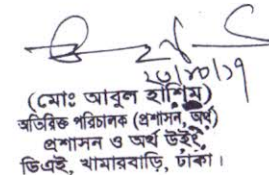 ২৩/১০/১৭
(মোঃ আবুল হাশিম)
অতিরিক্ত পরিচালক (প্রশাসন, অর্থ)
প্রশাসন ও অর্থ উইং,
ডিএই, খামারবাড়ি, ঢাকা।